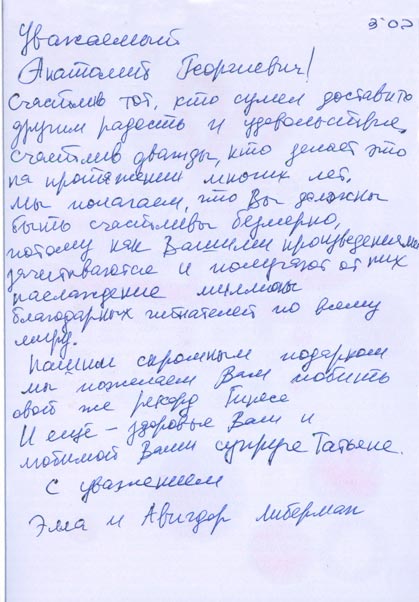 3:02
Уважаемый
Анатолий Георгиевич!
Счастлив тот, кто сумел доставить
другим радость и удовольствие,
счастлив дважды, кто делает это
на протяжении многих лет.
Мы полагаем, что Вы должны
быть счастливы безмерно,
потому как Вашими произведениями
зачитываются и получают от них
наслаждение миллионы
благодарных читателей по всему
миру.
нашим скромным подарком
мы пожелаем Вам побить
свой же рекорд
И ещё – здоровья Вам и
любимой Вами супруге Татьяне.
С уважением
Элла и Авигдор Либерман